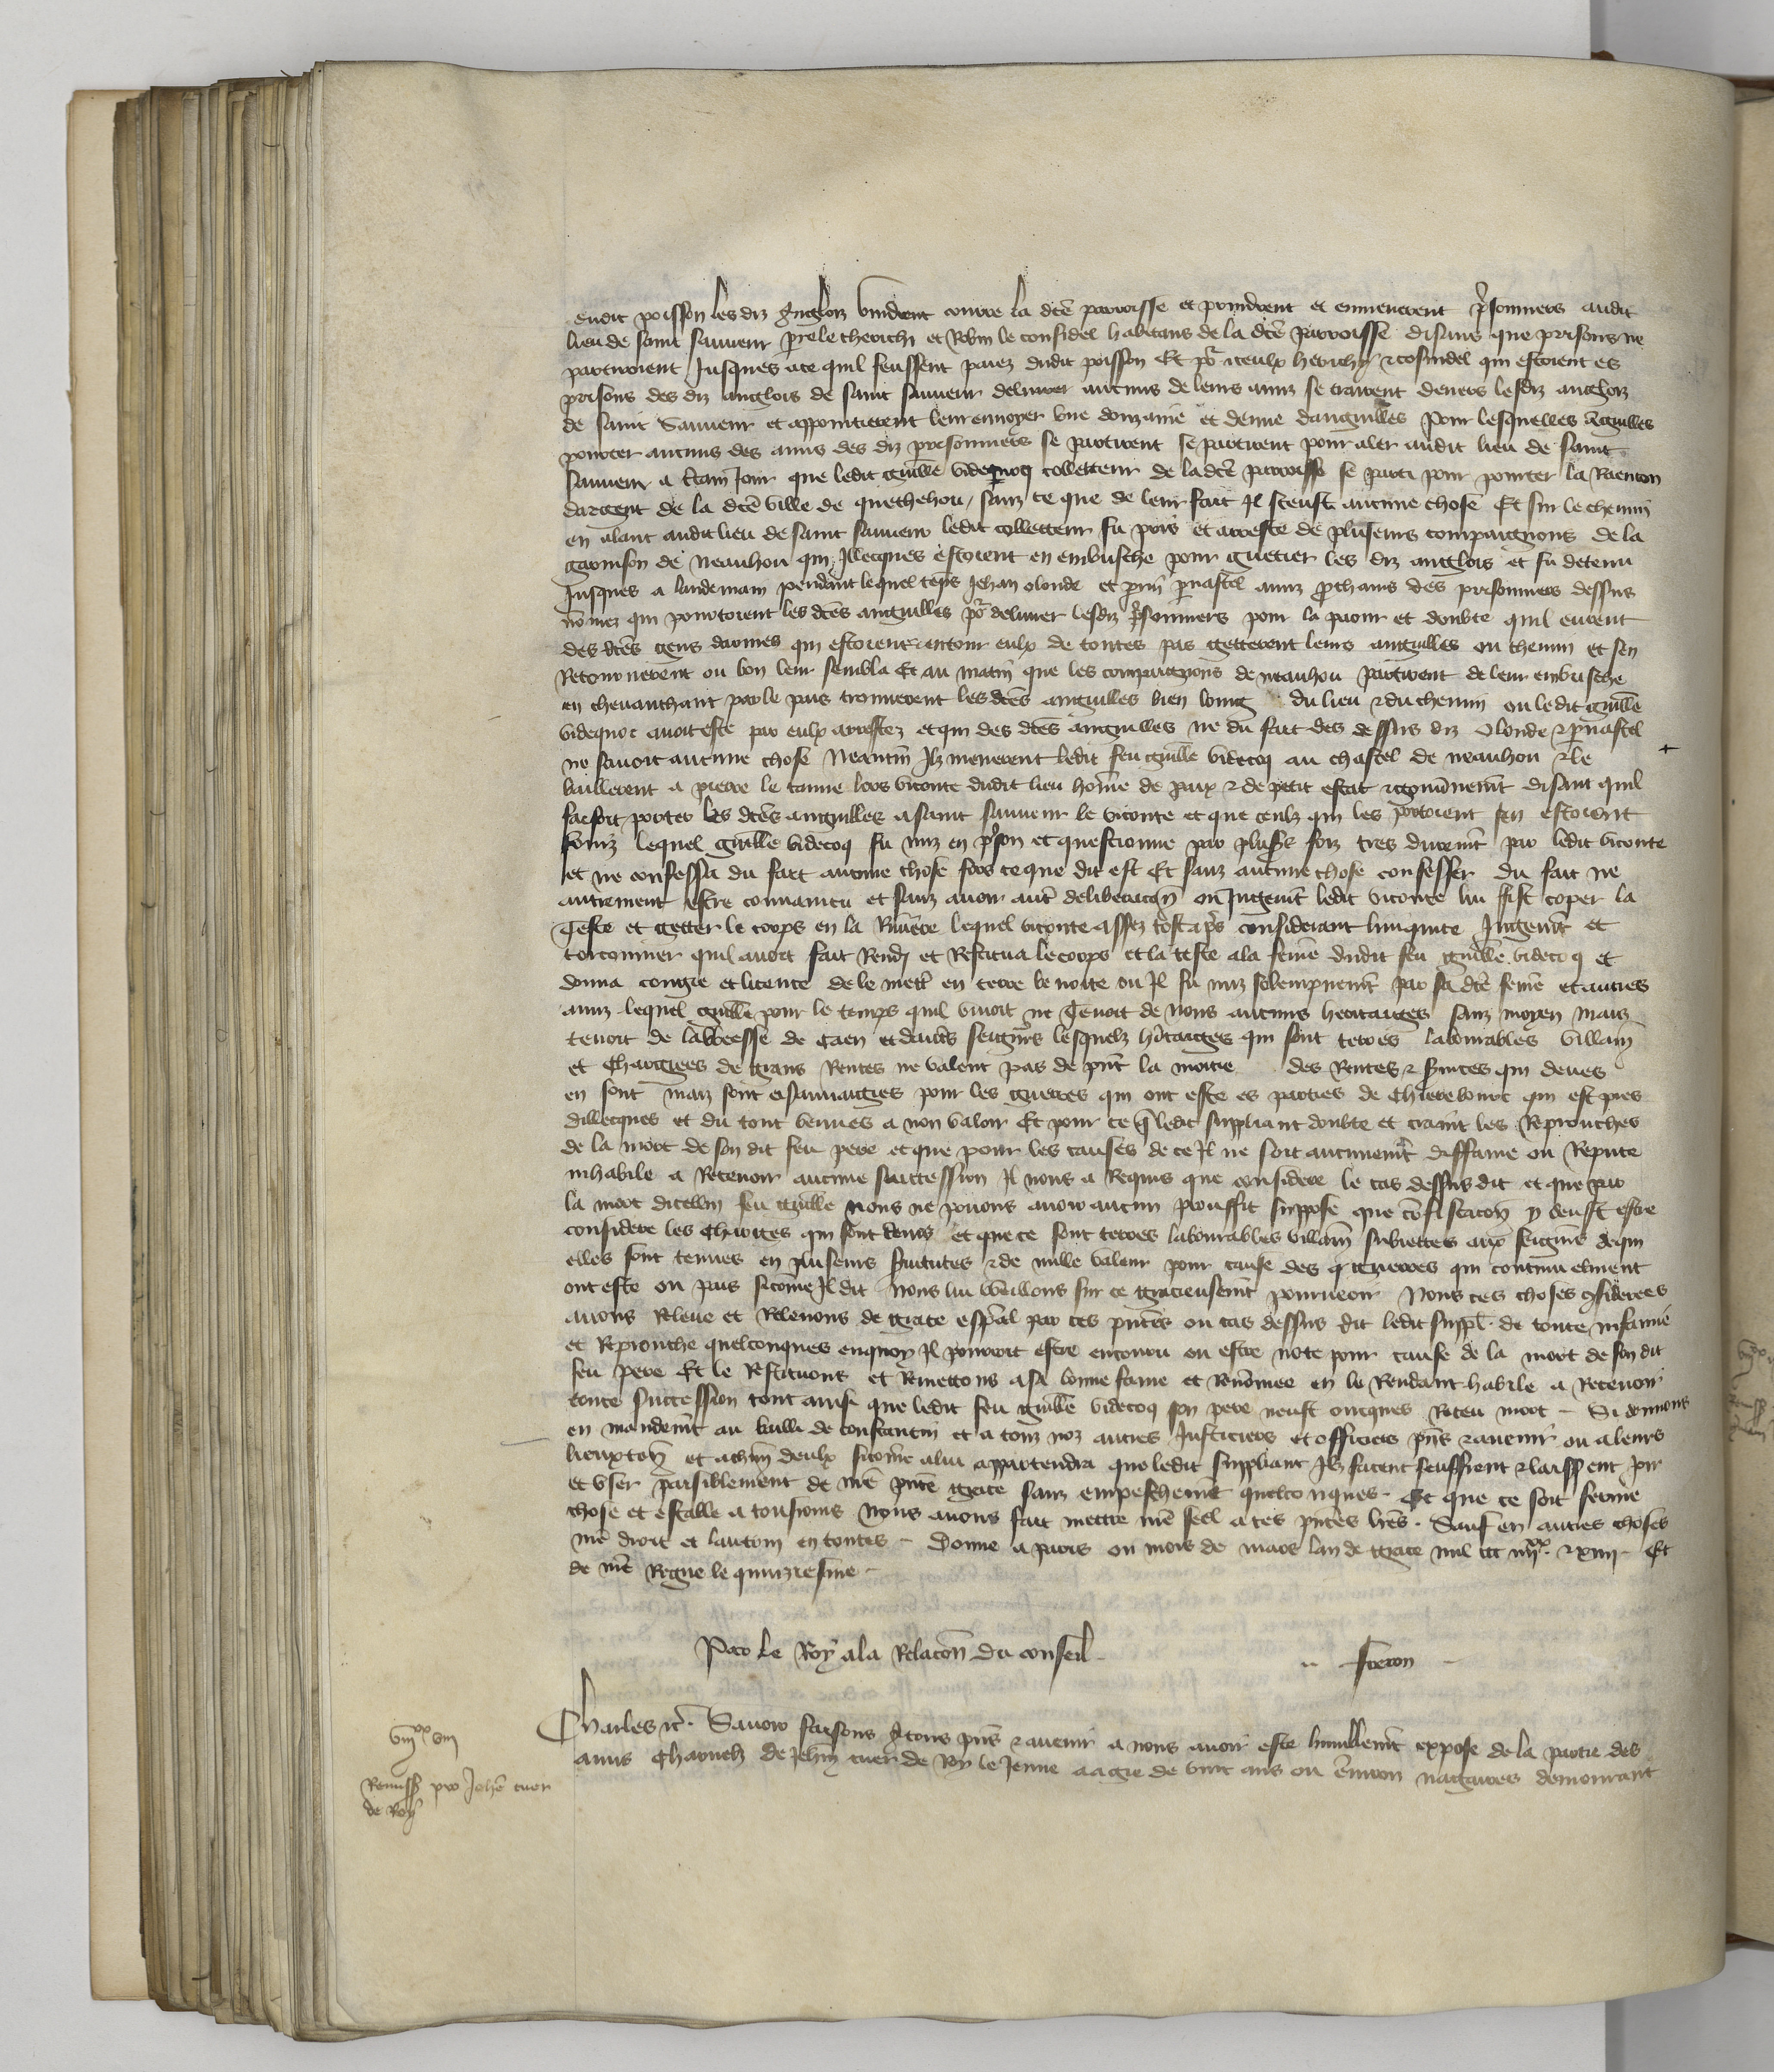 dudit poisson les diz anglois vindrent courre la dcē parroisse et prindrent et enmenerent p̄sonniers audit
lieu de saint sauveur le et Robin le habitans de la dcē parroisse disans que prisons ne
partiroient Jusques ace quil feussent paiez dudit poisson Et po^r iceulx qui estoient es
prisons des diz anglois de saint sauveur delivrer aucuns de leurs amis se trairent devers lesdiz anglois
de saint Sauveur et appointierent leur envoyer une douzaine et demie danguilles Pour lesquelles anguilles
porter aucuns des amis des diz prisonniers se partirent se partirent pour aler audit lieu de saint
sauveur a c̄tain Jour que ledit guillē videcoq collecteur de la dcē parroisse se parti pour porter la Raencon
dargent de la dcē ville de quethehou / sanz ce que de leur fait Il sceust aucune chose Et sur le chemin
en alant audit lieu de saint sauveur ledit collecteur fu pris et arreste de plusieurs compaignons de la
garnison de neauhou qui Illecques estoient en embusche pour guetier les diz anglois et fu detenu
Jusques a landemain pendant lequel tēps Jehan olonde et amis p̄chains des prisonniers dessus
nōmez qui portoient les dcēs anguilles po^r delivrer lesdiz p̄sonniers pour la paour et doubte quil eurent
des dcēs gens darmes qui estoient entour eulx de toutes pars getterent leurs anguilles ou chemin et sen
Retournerent ou bon leur sembla Et au matin que les compaignons de neauhou partirent de leur embusche
en chevauchant par le pais trouverent les dcēs anguilles bien loing du lieu & du chemin ou ledit guillē
videquoc avoit este par eulx arrestez et qui des dcēs anguilles ne du fait des dessus diz Olonde &
ne savoit aucune chose Neantm̄ Ilz menerent ledit feu guillē videcoq au chastel de neauhou & le
baillerent a pierre le lors viconte dudit lieu hōme de paix & de petit estat & gouvnem̄t disant quil
faisoit porter les dcēs anguilles a saint sauveur le viconte et que ceulx qui les portoient sen estoient
fouiz lequel guillē videcoq fu miz en p̄son et questionne par plus̄s foiz tres durem̄t par ledit viconte
et ne confessa du fait aucune chose fors ce que dit est Et sanz aucune chose confesser du fait ne
autrement estre convaincu et sanz avoir aut̄ deliberacōn ou Jugem̄t ledit viconte lui fist coper la
Teste et getter le corps en la Riviere lequel viconte assez tost ap̄s considerant liniquite Jugem̄t et
torconnier quil avoit fait Rendi et Restitua le corps et la teste a la femē dudit feu guillē videcoq et
donna congie et licence de le mett̄ en terre benoite ou Il fu miz solempnem̄t par sa dcē femē et autres
amis lequel guillē pour le temps quil vivoit ne Tenoit de Nous aucuns heritaiges sanz moyen mais
tenoit de labbeesse de Caen et dautr̄s seign̄rs lesquelz h̄itaiges qui sont terres labourables
et Chargiees de grans Rentes ne valent pas de p̄nt la moitie des Rentes & s̄vices qui deues
en sont maiz sont pour les guerres qui ont este es parties de Chierebourc qui est pres
dillecques et du tout venues a non valoir Et pour ce q̄ ledit suppliant doubte et craint les Reprouches
de la mort de son dit feu pere et que pour les causes de ce Il ne soit aucunem̄t diffame ou Repute
inhabile a Recevoir aucune succession Il nous a Requis que considere le cas dessus dit et que par
la mort dicellui feu guillē nous ne povons avoir aucun prouffit suppose que cōfiscacōn y deust estre
considere les Charges qui sont deues et que ce sont terres labourables subiettes aux seign̄rs de qui
elles sont tenues en plusieurs s̄vitutes & de nulle valeur pour cause des guerres qui continuelment
ont este ou pais sicome Il dit Nous lui veuillons sur ce gracieusem̄t pourveoir Nous ces choses 9siderees
avons Releve et Relevons de grace esp̄al par ces p̄ntes ou cas dessus dit ledit suppl̄. de toute infamie
et Reprouche quelconques enquoy Il pourroit estre encouru ou estre note pour cause de la mort de son dit
feu pere Et le Restituons et Remettons a sa bonne fame et Renōmee en le Rendant habile a Recevoir
toute succession tout ainsi que ledit feu guillē videcoq son pere neust oncques Receu mort - Si donnons
en mandem̄t au bailli de constantin et a touz noz autres Justiciers et officiers p̄ns & avenir ou a leurs
lieuxten̄ et a chūn deulx sicome a lui appartendra que ledit suppliant Ilz facent seuffrent & laissent joir
et user paisiblement de n̄re p̄nte grace sanz empeschem̄t quelconques. Et que ce soit ferme
chose et estable a tousiours Nous avons fait mettre n̄re seel a ces p̄ntes l̄res. Sauf en autres choses
n̄re droit et lautruy en toutes - Donne a paris ou mois de mars lan de grace mil ccc iiij^xx. & xiiij - Et
de n̄re Regne le quinziesme -
Par le Roy a la Relacōn du conseil -
.. freron -
viij^xx viij
Remiss̄ pro Johē cuer
de Roy
Charles &c̄. Savoir faisons a touz p̄ns & avenir a nous avoir este humblem̄t expose de la partie des
amis Charnelz de Jehan cuer de Roy le Jenne aagie de vint ans ou environ nagaires demourant